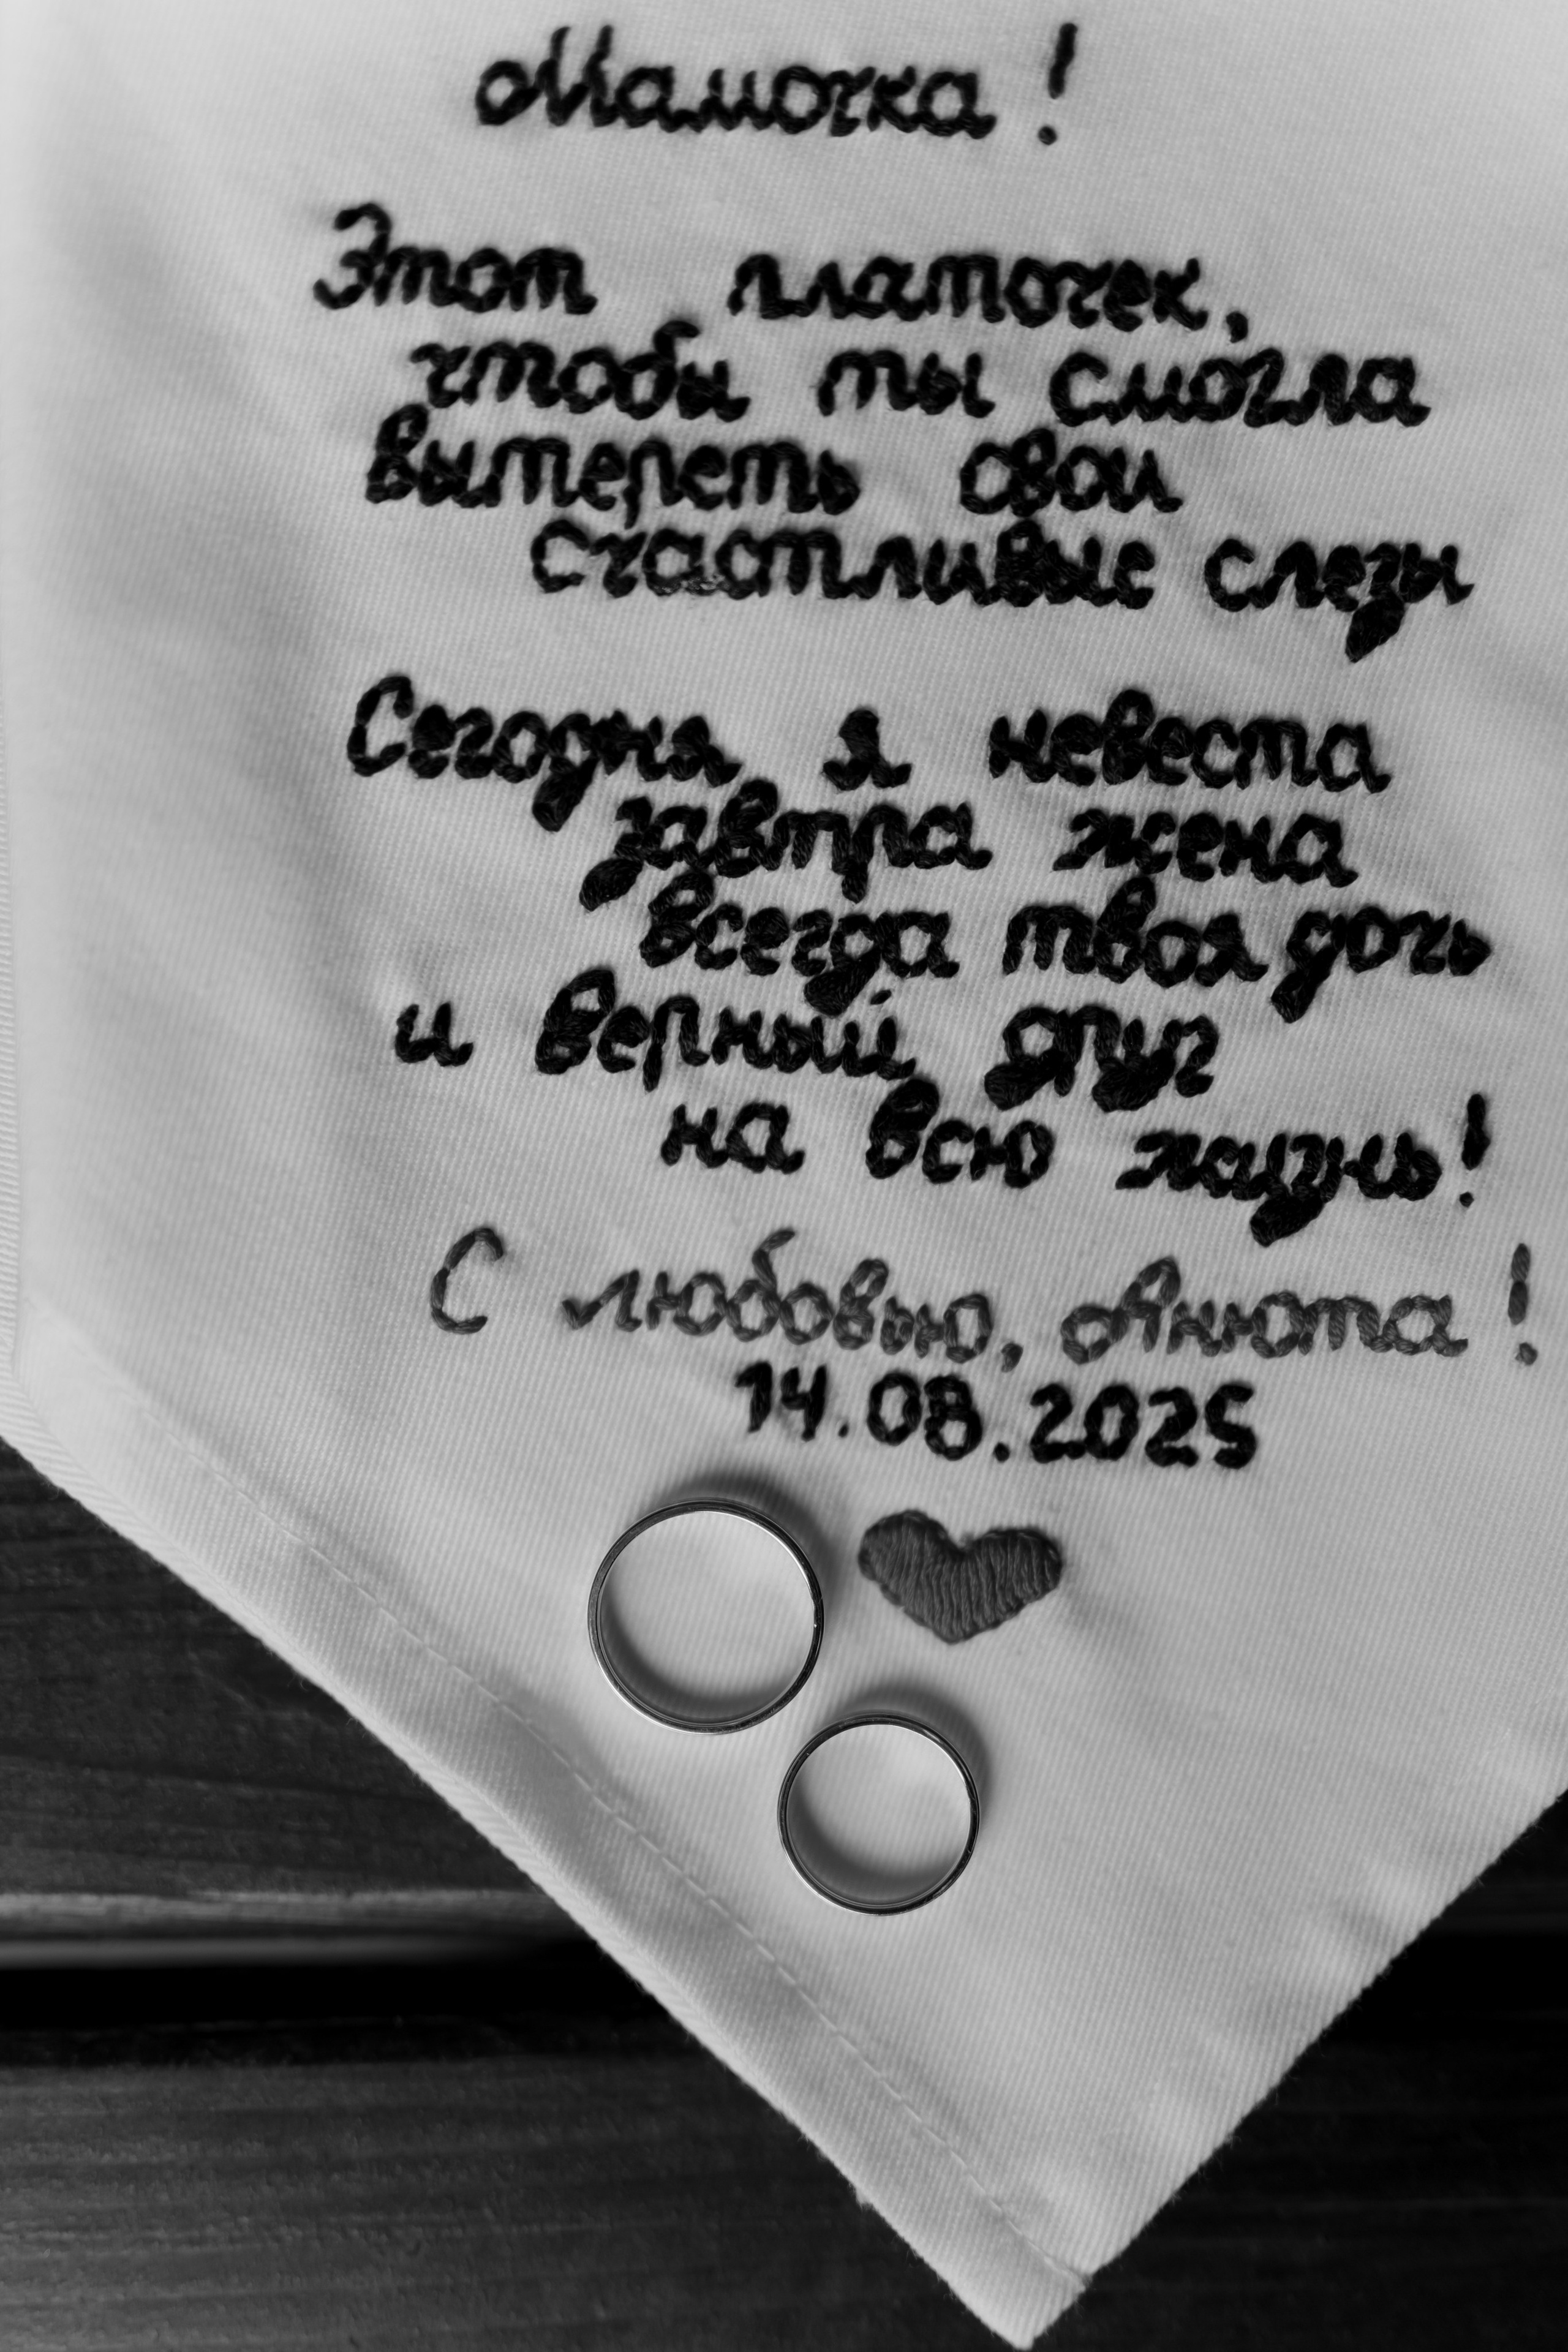 Мамочка!
Этот платочек,
чтобы ты смогла
вытереть свои
счастливые слезы
Сегодня я невеста
завтра жена
всегда твоя дочь
и верный друг
на всю жизнь!
С любовью, Анюта!
14.08.2025